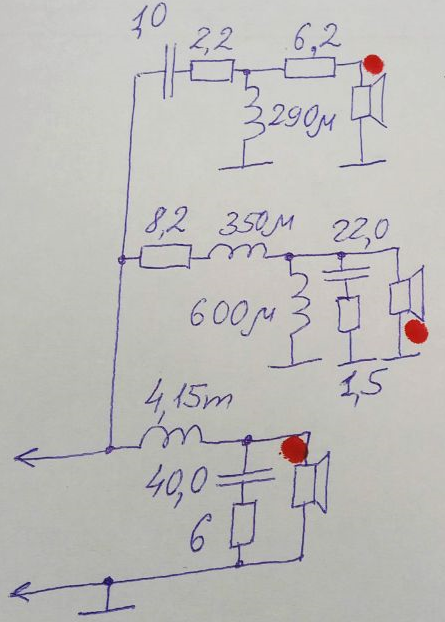 1,0
2,2
6,2
290µ
8,2
350µ
22,0
600µ
1,5
4,15m
40,0
6